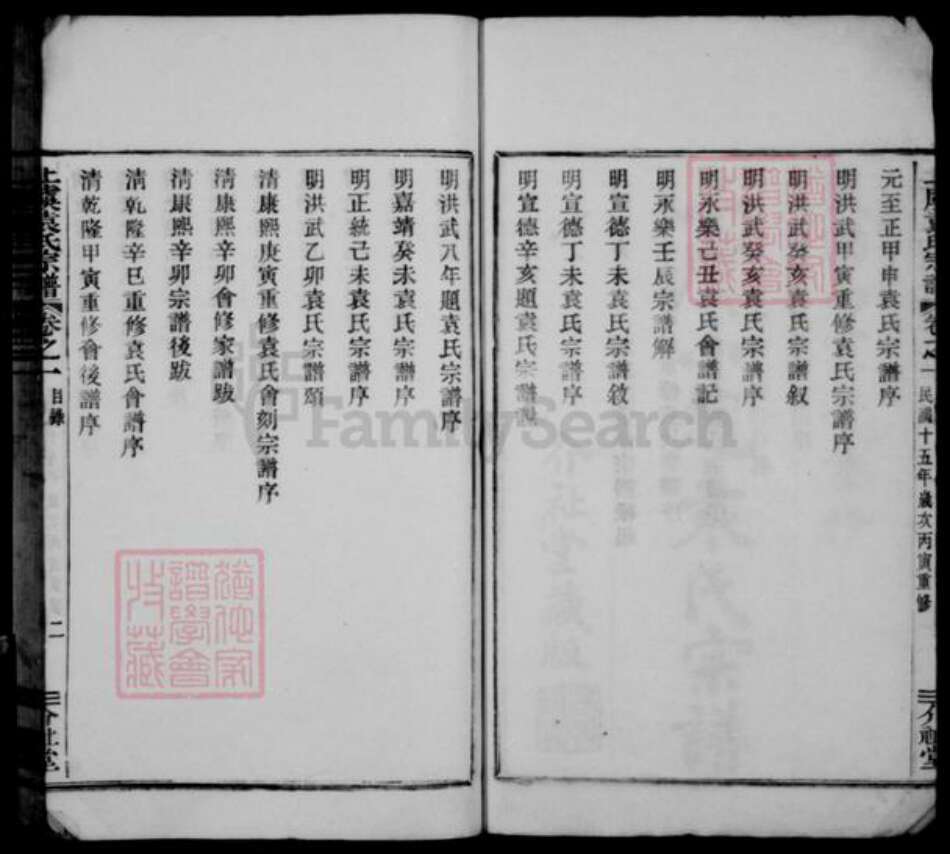 上虞袁氏宗譜 卷之一 民國十五年歲次丙寅重修 介祉堂
元至正甲申袁氏宗譜序
明洪武甲寅重修袁氏宗譜序
明洪武癸亥袁氏宗譜叙
明洪武癸亥袁氏宗譜序
明永樂己丑袁氏會譜記
明永樂壬辰宗譜解
明宣德丁未袁氏宗譜敘
明宣德丁未袁氏宗譜序
明宣德辛亥題袁氏宗譜説
明洪武八年題袁氏宗譜序
明嘉靖癸未袁氏宗譜序
明正統己未袁氏宗譜序
明洪武乙卯袁氏宗譜頌
清康熙庚寅重修袁氏會刻宗譜序
清康熙辛卯會修家譜跋
清康熙辛卯宗譜後跋
清乾隆辛巳重修袁氏會譜序
清乾隆甲寅重修會後譜序
上虞袁氏宗譜 卷之一 目錄 二 介祉堂
譜學會
收藏
FamilySearch